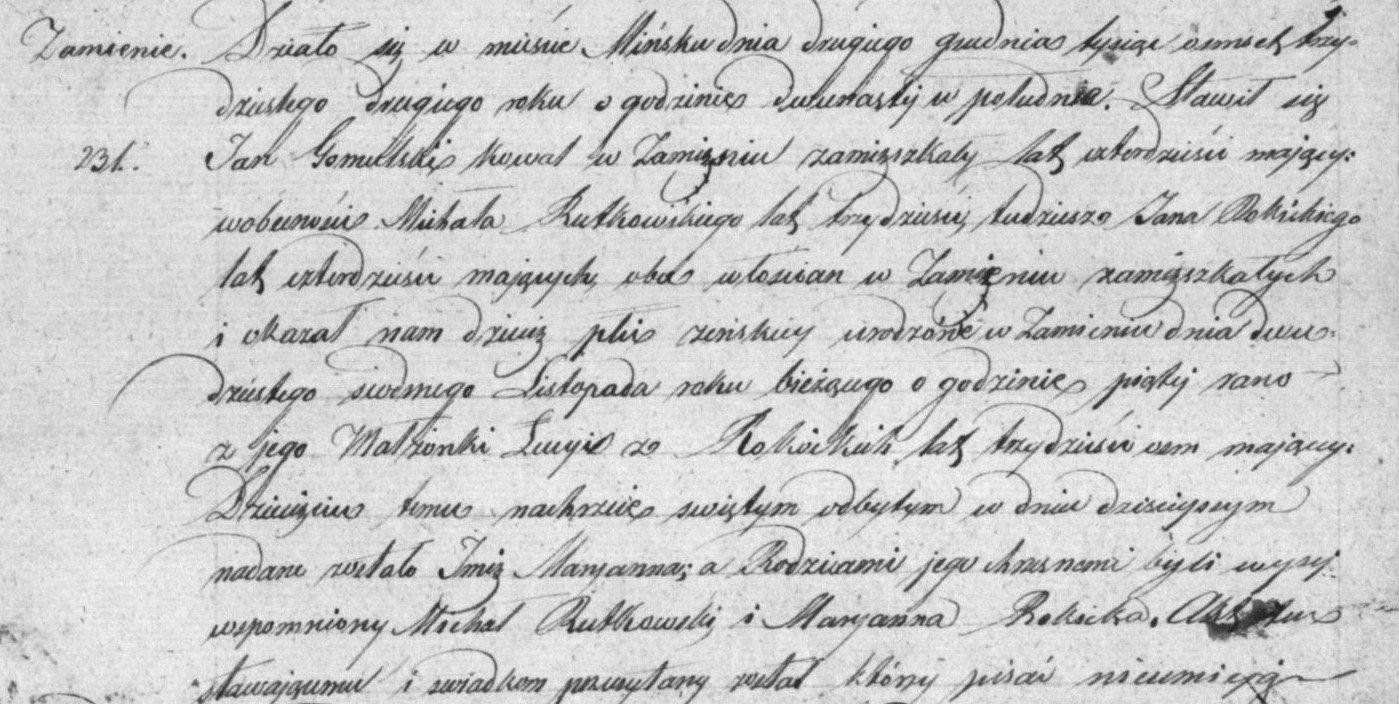 Zamienie. Działo się w mieście Mińsku dnia drugiego grudnia tysiąc ośmset trzy-
dziestego drugiego roku o godzinie dwunastej w południe. Stawił się
231. Jan Gomulski kowal w Zamieniu zamięszkały lat czterdzieści maiący:
wobecności Michała Rutkowskiego lat trzydzieści, tudziesz Jana Rokickiego
lat czterdzieści mających, oba włościan w Zamieniu zamięszkałych
i okazał nam dziecię płci żeńskiey urodzone w Zamieniu dnia dwu-
dziestego siodmego Listopada roku bieżącego o godzinie piątej rano
z jego Małżonki Łucyi z Rokickich lat trzydzieści ośm mający:
Dziecięciu temu na chrzcie świętym odbytym w dniu dzisieyszym
nadane zostało Imię Maryanna; a Rodzicami jego chrzesnemi byli wyżej
wspomniony Michał Rutkowski i Maryanna Rokicka. Akt ten
stawającemu i świadkom przeczytany został który pisać nieumieją